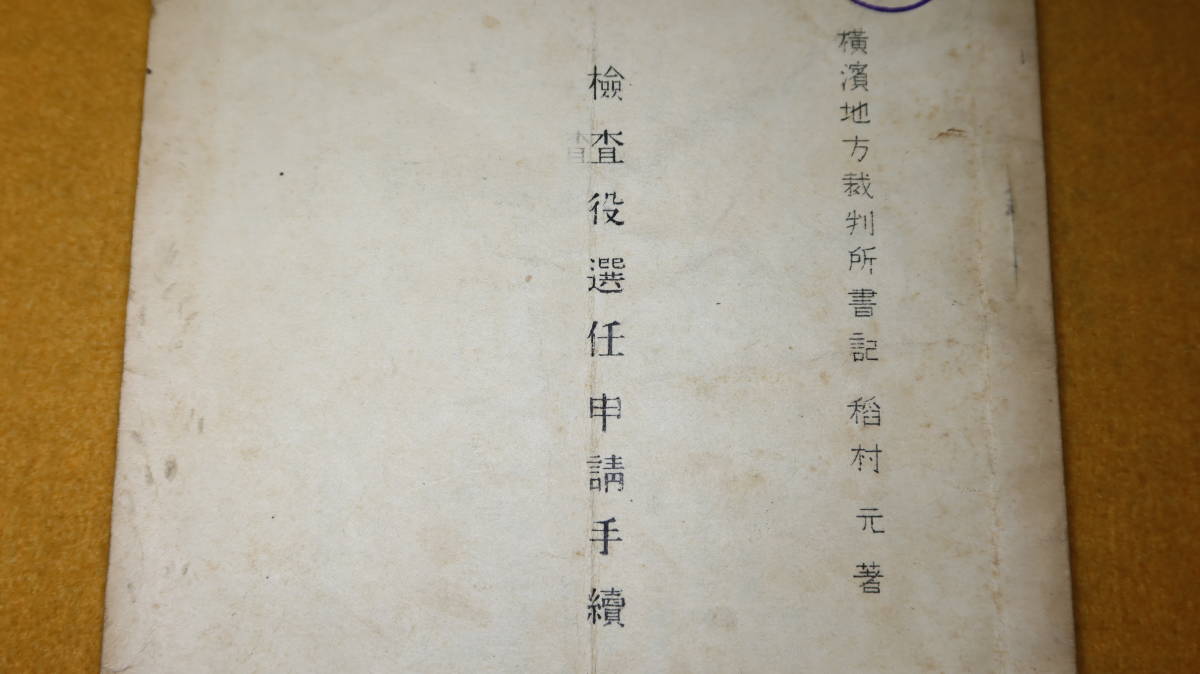 橫濱地方裁判所書記 稻村元著
檢査役選任申請手續